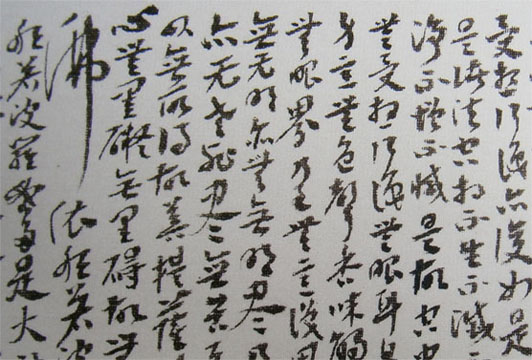 受想行識亦復如是
是諸法空相不生不滅
淨不增不減是故空中
無受想行識無眼耳鼻
身意無色聲香味觸
無眼界乃至無意識
無无明亦無無明盡乃
亦无老死盡無苦
以無所得故菩提薩
心無罣礙無罣礙故無
佛依般若波
般若波羅蜜多是大